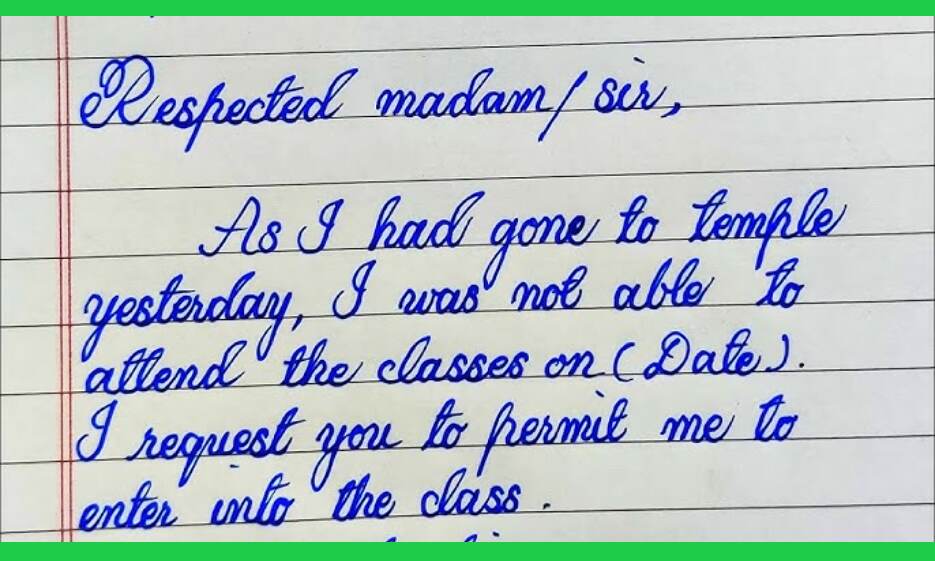 Respected madam/sir,
As I had gone to temple
yesterday, I was not able to
attend the classes on (Date).
I request you to permit me to
enter into the class.